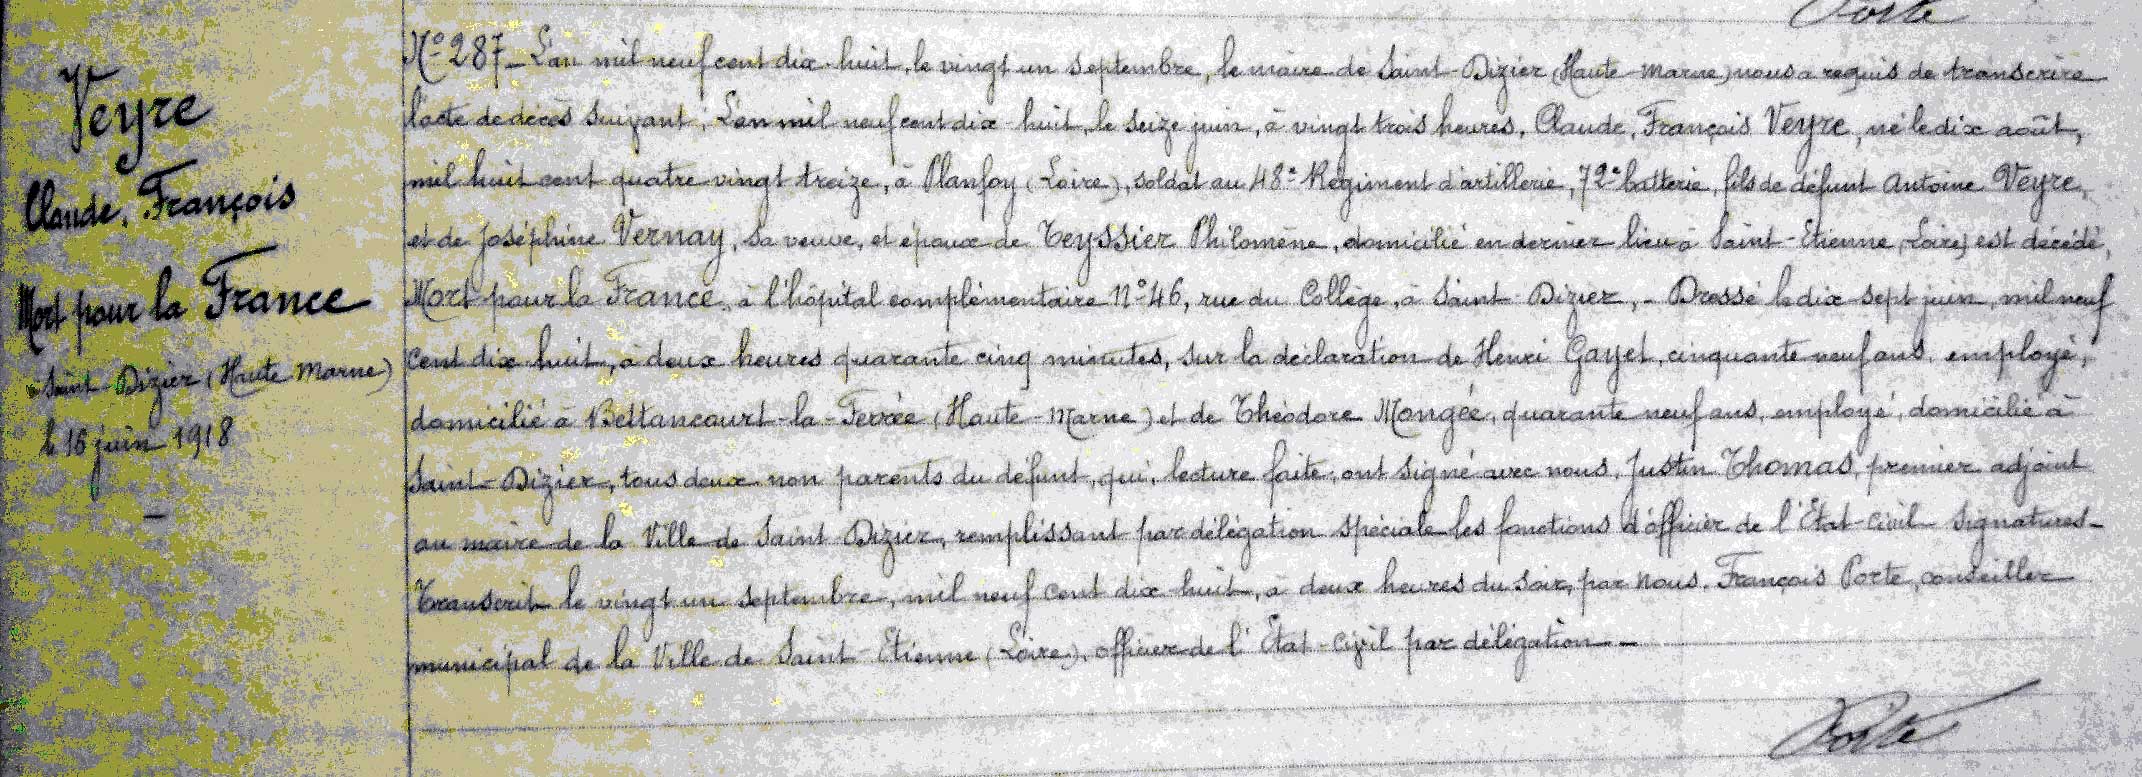 Porte
Veyre
Claude, François
Mort pour la France
à Saint-Dizier (Haute Marne)
le 16 juin 1918
N° 287 - L'an mil neuf cent dix-huit, le vingt un septembre, le maire de Saint-Dizier (Haute-Marne) nous a requis de transcrire
l'acte de décès suivant: L'an mil neuf cent dix-huit, le seize juin, à vingt trois heures, Claude, François Veyre, né le dix août,
mil huit cent quatre vingt treize, à Planfoy (Loire), soldat au 48e Régiment d'artillerie, 72e batterie, fils de défunt Antoine Veyre,
et de Joséphine Vernay, sa veuve, et époux de Teyssier Philomène, domicilié en dernier lieu à Saint-Etienne (Loire) est décédé,
Mort pour la France, à l'hôpital complémentaire N° 46, rue du Collège, à Saint-Dizier, - Dressé le dix-sept juin, mil neuf
cent dix huit, à deux heures quarante cinq minutes, sur la déclaration de Henri Gayet, cinquante neuf ans, employé,
domicilié à Bettancourt-la-Ferrée (Haute-Marne) et de Théodore Mongée, quarante neuf ans, employé, domicilié à
Saint-Dizier, tous deux non parents du défunt, qui, lecture faite, ont signé avec nous, Justin Thomas, premier adjoint
au maire de la Ville de Saint-Dizier, remplissant par délégation spéciale les fonctions d'officier de l'Etat-civil - Signatures -
Transcrit le vingt un septembre, mil neuf cent dix-huit, à deux heures du soir, par Nous, François Porte, conseiller
municipal de la Ville de Saint-Etienne (Loire), officier de l'Etat-civil par délégation -
Porte